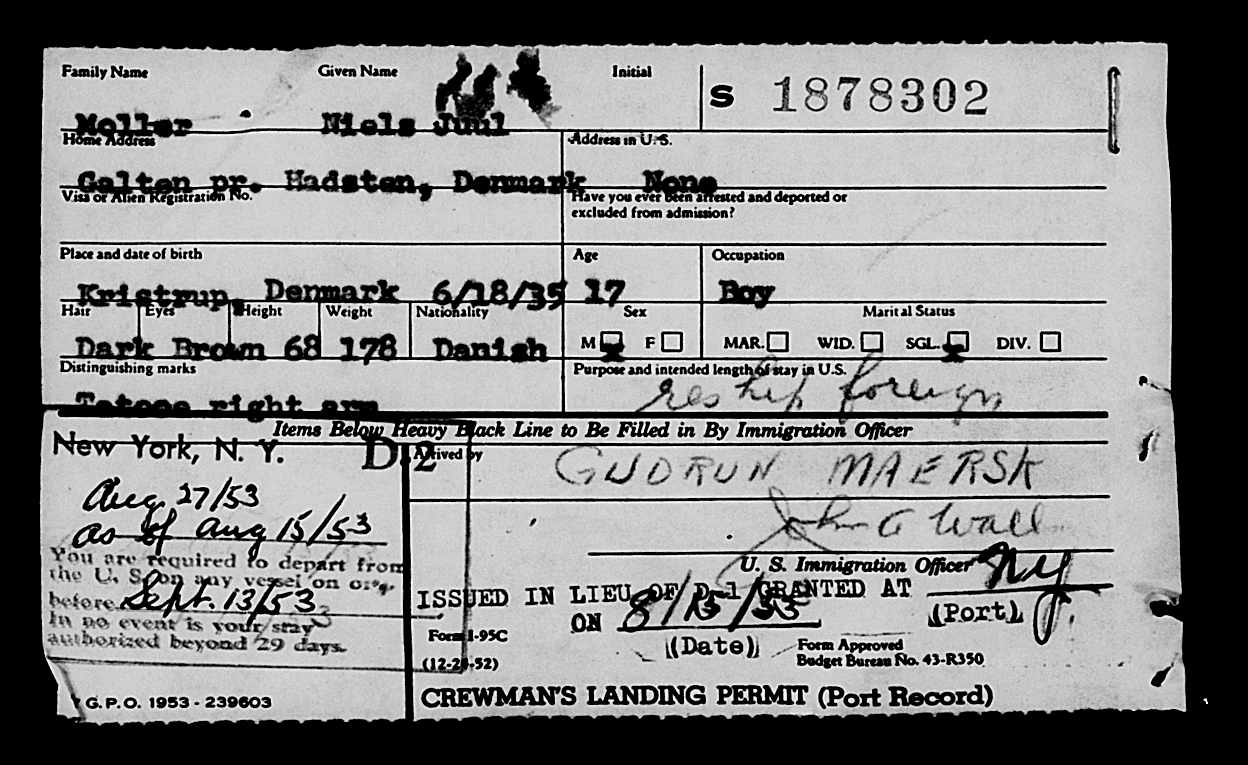 Family Name Given Name Initial
S 1878302
Moller Niels Juul
Home Address Address in U.S.
Galten pr. Hadsten, Denmark None
Visa or Alien Registration No. Have you ever been arrested and deported or
excluded from admission?
Place and date of birth Age Occupation
Kristrup, Denmark 6/18/35 17 Boy
Hair Eyes Height Weight Nationality Sex Marital Status
Dark Brown 68 178 Danish M F MAR. WID. SGL. DIV.
Distinguishing marks Purpose and intended length of stay in U.S.
Tatooe right arm reship foreign
Items Below Heavy Black Line to Be Filled in By Immigration Officer
New York, N. Y. D 2
Arrived by GUDRUN MAERSK
Aug 27/53
as of Aug 15/53
John A Wall
U. S. Immigration Officer
You are required to depart from
the U. S. on any vessel on or
before Sept. 13/53
In no event is your stay
authorized beyond 29 days.
ISSUED IN LIEU OF D-1 GRANTED AT NY
(Port)
ON 8/15/53
(Date)
Form I-95C
(12-24-52)
Form Approved
Budget Bureau No. 43-R350
G.P.O. 1953 - 239603
CREWMAN'S LANDING PERMIT (Port Record)